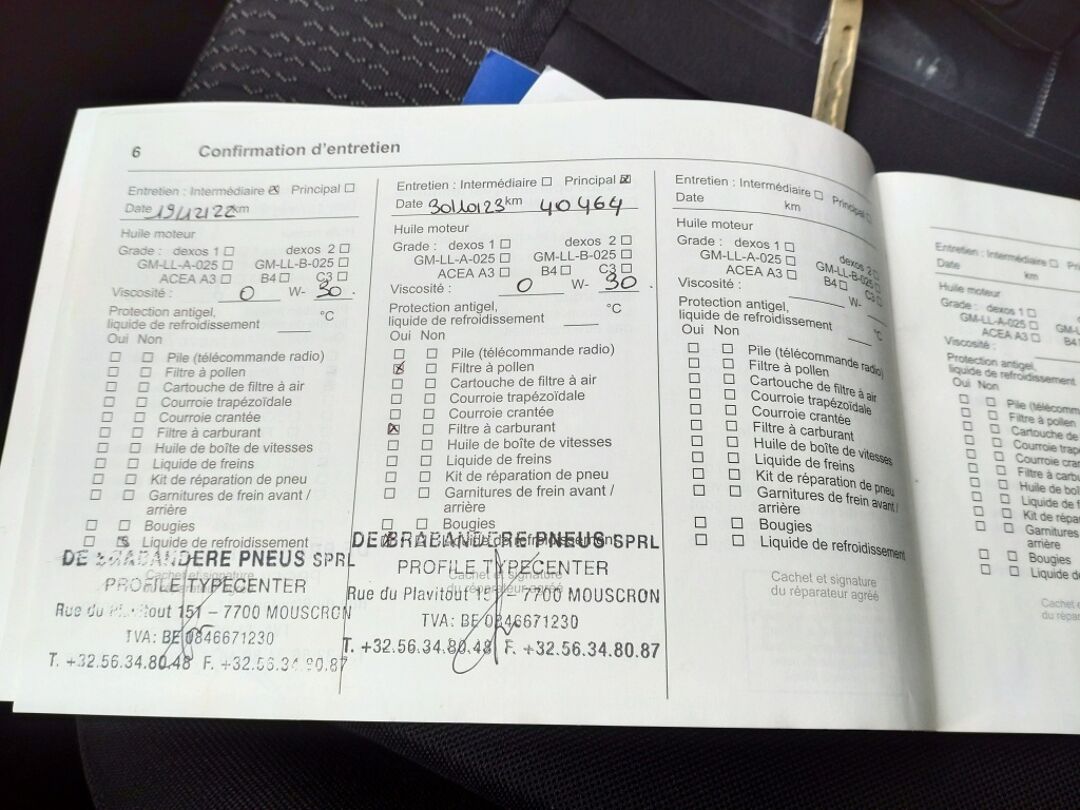 6 Confirmation d'entretien
Entretien : Intermédiaire ☒ Principal ☐
Date 19/12/22 km
Huile moteur
Grade : dexos 1 ☐ dexos 2 ☐
GM-LL-A-025 ☐ GM-LL-B-025 ☐
ACEA A3 ☐ B4 ☐ C3 ☐
Viscosité : 0 W- 30 .
Protection antigel,
liquide de refroidissement °C
Oui Non
☐ ☐ Pile (télécommande radio)
☐ ☐ Filtre à pollen
☐ ☐ Cartouche de filtre à air
☐ ☐ Courroie trapézoïdale
☐ ☐ Courroie crantée
☐ ☐ Filtre à carburant
☐ ☐ Huile de boîte de vitesses
☐ ☐ Liquide de freins
☐ ☐ Kit de réparation de pneu
☐ ☐ Garnitures de frein avant /
arrière
☐ ☐ Bougies
☐ ☒ Liquide de refroidissement
Cachet et signature
du réparateur agréé
DE BRABANDERE PNEUS SPRL
PROFILE TYPECENTER
Rue du Plavitout 151 – 7700 MOUSCRON
TVA: BE 0846671230
T. +32.56.34.80.48 F. +32.56.34.80.87
Entretien : Intermédiaire ☐ Principal ☒
Date 30/10/23 km 40464
Huile moteur
Grade : dexos 1 ☐ dexos 2 ☐
GM-LL-A-025 ☐ GM-LL-B-025 ☐
ACEA A3 ☐ B4 ☐ C3 ☐
Viscosité : 0 W- 30 .
Protection antigel,
liquide de refroidissement °C
Oui Non
☐ ☐ Pile (télécommande radio)
☒ ☐ Filtre à pollen
☐ ☐ Cartouche de filtre à air
☐ ☐ Courroie trapézoïdale
☐ ☐ Courroie crantée
☒ ☐ Filtre à carburant
☐ ☐ Huile de boîte de vitesses
☐ ☐ Liquide de freins
☐ ☐ Kit de réparation de pneu
☐ ☐ Garnitures de frein avant /
arrière
☐ ☐ Bougies
Liquide de refroidissement
Cachet et signature
du réparateur agréé
DE BRABANDERE PNEUS SPRL
PROFILE TYPECENTER
Rue du Plavitout 151 – 7700 MOUSCRON
TVA: BE 0846671230
T. +32.56.34.80.48 F. +32.56.34.80.87
Entretien : Intermédiaire ☐ Principal ☐
Date km
Huile moteur
Grade : dexos 1 ☐ dexos 2 ☐
GM-LL-A-025 ☐ GM-LL-B-025 ☐
ACEA A3 ☐ B4 ☐ C3 ☐
Viscosité : W- .
Protection antigel,
liquide de refroidissement °C
Oui Non
☐ ☐ Pile (télécommande radio)
☐ ☐ Filtre à pollen
☐ ☐ Cartouche de filtre à air
☐ ☐ Courroie trapézoïdale
☐ ☐ Courroie crantée
☐ ☐ Filtre à carburant
☐ ☐ Huile de boîte de vitesses
☐ ☐ Liquide de freins
☐ ☐ Kit de réparation de pneu
☐ ☐ Garnitures de frein avant /
arrière
☐ ☐ Bougies
☐ ☐ Liquide de refroidissement
Cachet et signature
du réparateur agréé
Entretien : Intermédiaire ☐ Pri
Date km
Huile moteur
Grade : dexos 1 ☐
GM-LL-A-025 ☐
ACEA A3 ☐ B4
Viscosité :
Protection antigel,
liquide de refroidissement
Oui Non
☐ ☐ Pile (télécomm
☐ ☐ Filtre à pollen
☐ ☐ Cartouche de
☐ ☐ Courroie trap
☐ ☐ Courroie cran
☐ ☐ Filtre à carbu
☐ ☐ Huile de boî
☐ ☐ Liquide de f
☐ ☐ Kit de répar
☐ ☐ Garnitures
arrière
☐ ☐ Bougies
☐ ☐ Liquide d
Cachet e
du répara